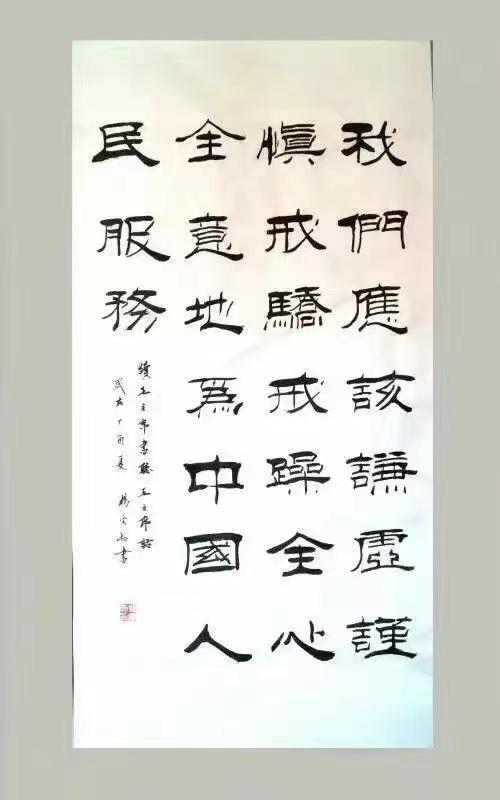 我們應該謙虛謹
慎戒驕戒躁全心
全意地為中國人
民服務
讀毛主席書聽毛主席話
歲在丁酉夏 楊 書